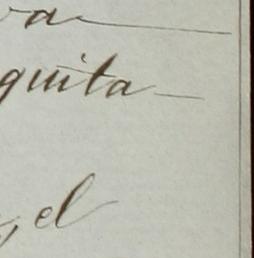 va
quita
, el